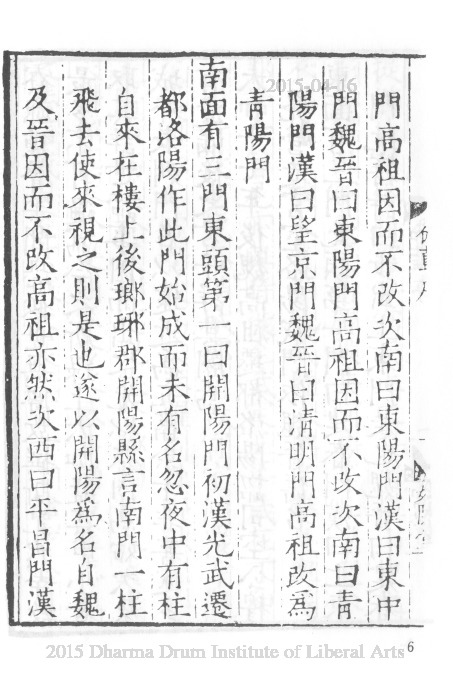 門高祖因而不改次南曰東陽門漢曰東中
門魏晉曰東陽門高祖因而不改次南曰青
陽門漢曰望京門魏晉曰清明門高祖改為
青陽門
南面有三門東頭第一曰開陽門初漢光武遷
都洛陽作此門始成而未有名忽夜中有柱
自來在樓上後瑯琊郡開陽縣言南門一柱
飛去使來視之則是也遂以開陽爲名自魏
及晉因而不改高祖亦然次西曰平昌門漢
2015-04-16
6
2015 Dharma Drum Institute of Liberal Arts